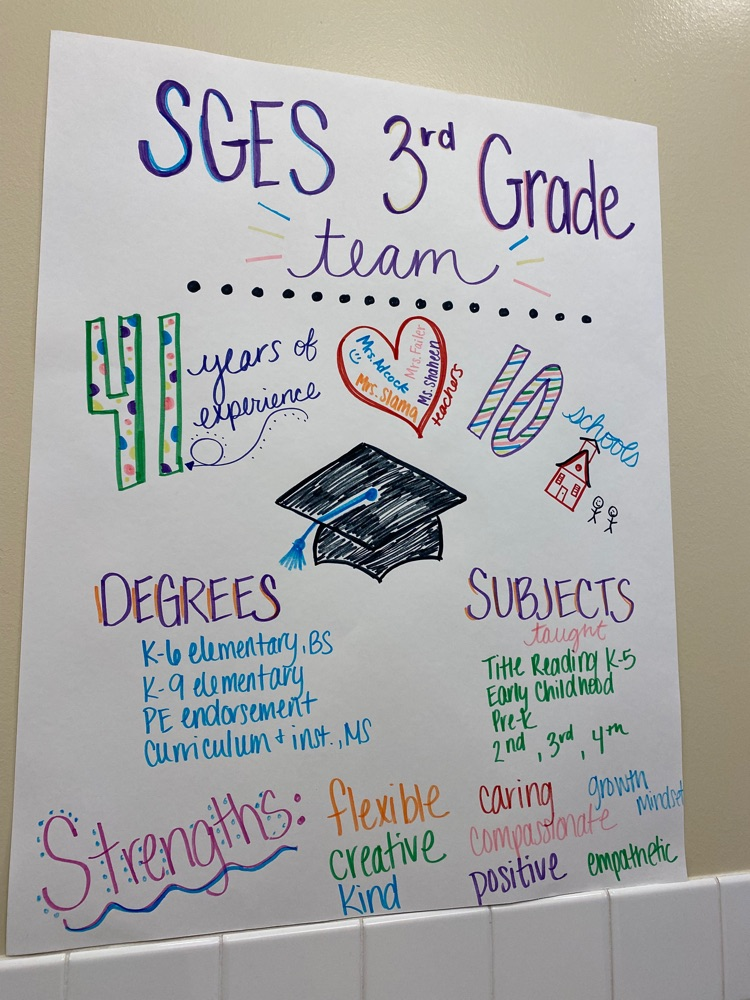 SGES 3rd Grade
team
41 years of
experience
Mrs. Adcock
Mrs. Slama
Mrs. Failer
Ms. Shaheen
teachers
10 schools
DEGREES
K-6 elementary, BS
K-9 elementary
PE endorsement
Curriculum + inst., MS
SUBJECTS
taught
Title Reading K-5
Early Childhood
Pre-K
2nd, 3rd, 4th
Strengths:
flexible
creative
kind
caring
compassionate
positive
growth
mindset
empathetic